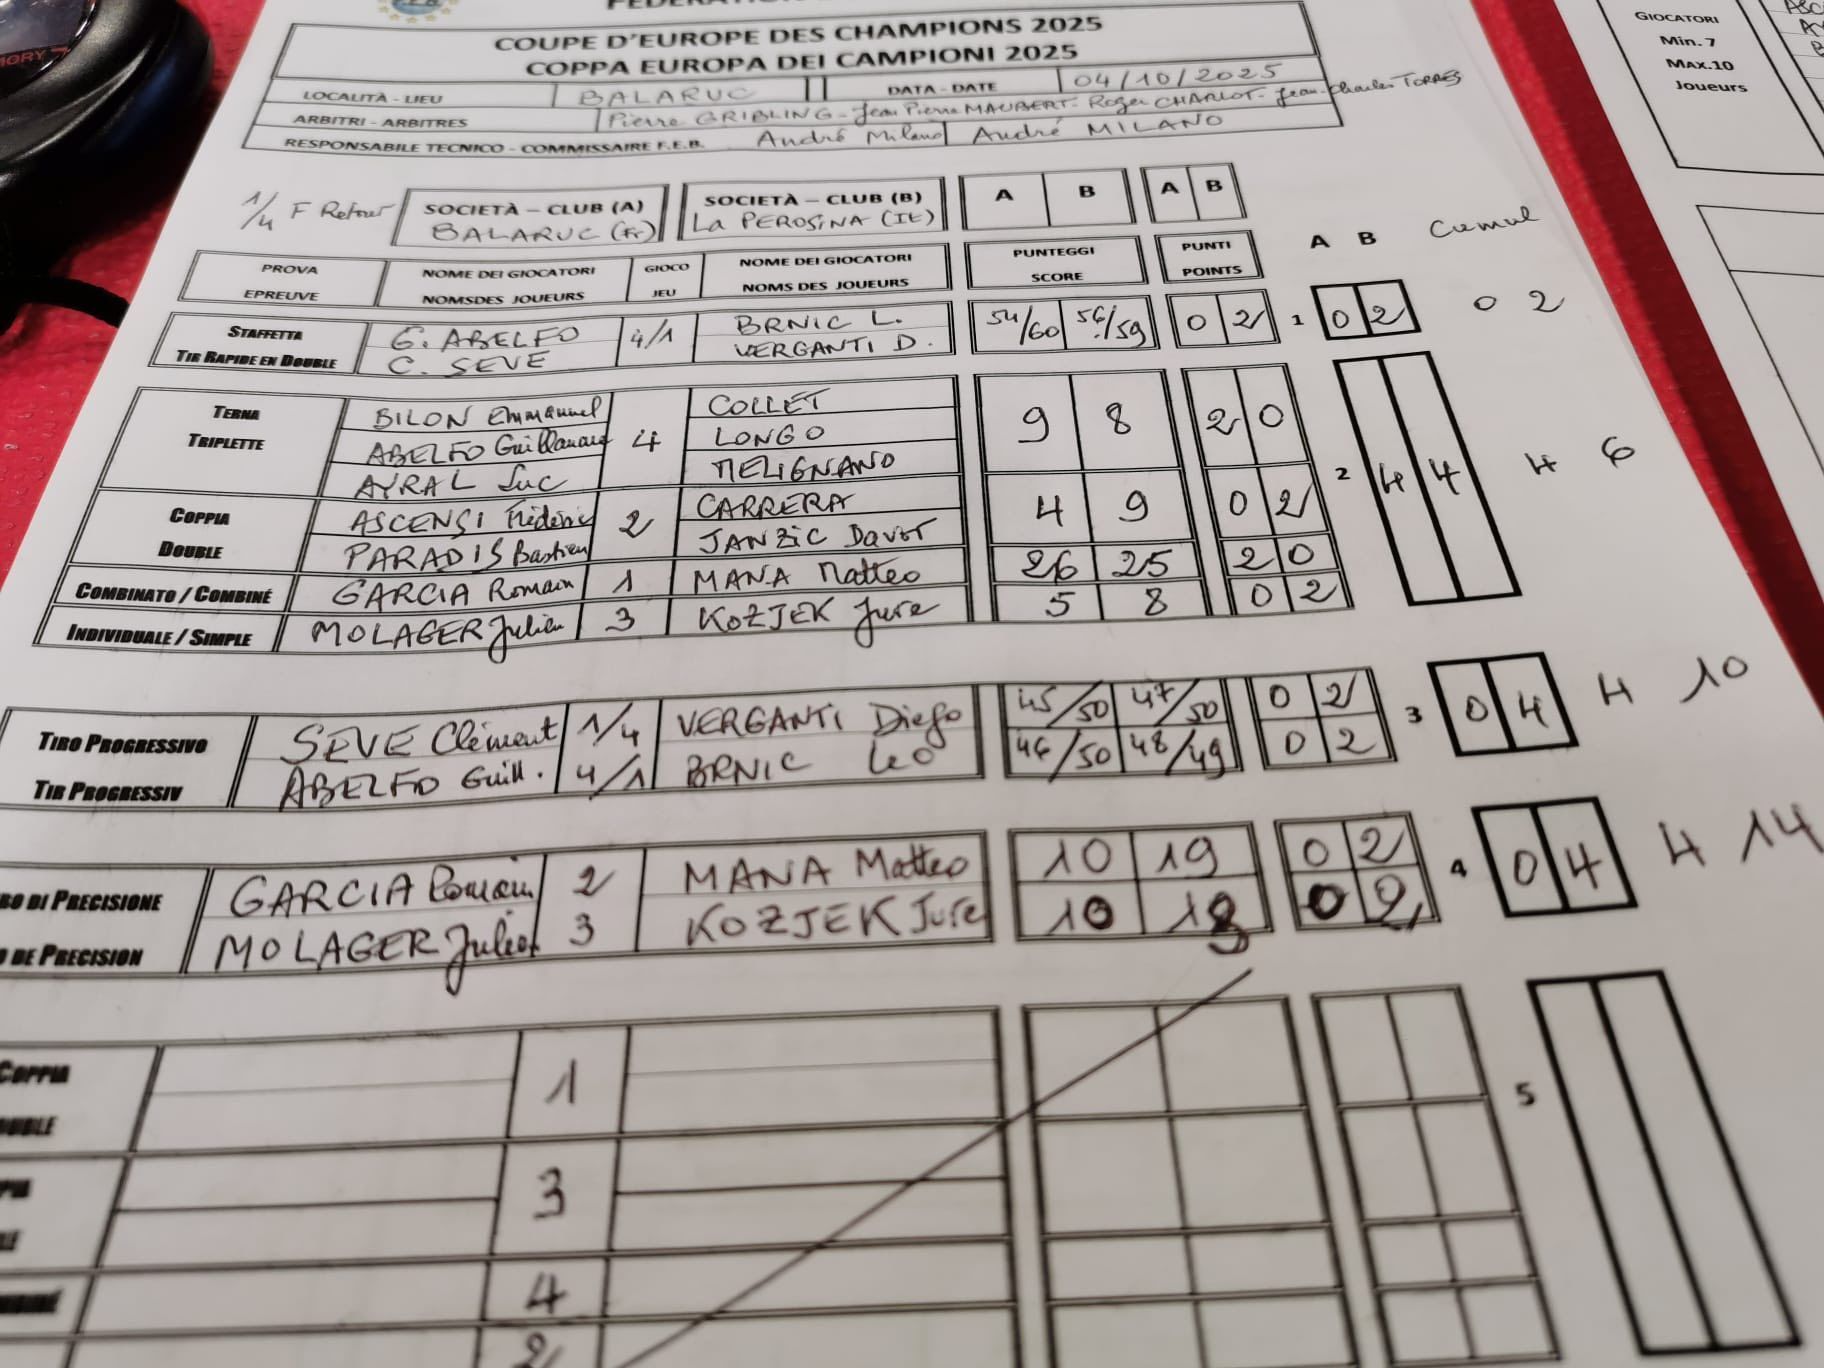 COUPE D'EUROPE DES CHAMPIONS 2025
COPPA EUROPA DEI CAMPIONI 2025
LOCALITÀ - LIEU BALARUC DATA - DATE 04/10/2025
ARBITRI - ARBITRES Pierre GRIBLING - Jean Pierre MAUBERT - Roger CHARLOT - Jean-Charles TORRES
RESPONSABILE TECNICO - COMMISSAIRE F.E.B. André Milano André MILANO
1/4 F Retour SOCIETÀ – CLUB (A) SOCIETÀ – CLUB (B) A B A B
BALARUC (Fr) LA PEROSINA (It)
A B Cumul
PROVA NOME DEI GIOCATORI GIOCO NOME DEI GIOCATORI PUNTEGGI PUNTI
EPREUVE NOMSDES JOUEURS JEU NOMS DES JOUEURS SCORE POINTS
STAFFETTA G. ABELFO 4/1 BRNIC L. 54/60 56/59 0 2 1 0 2 0 2
TIR RAPIDE EN DOUBLE C. SEVE VERGANTI D.
TERNA BILON Emmanuel 4 COLLET 9 8 2 0
TRIPLETTE ABELFO Guillaume LONGO
AYRAL Luc MELIGNANO
2 4 4 4 6
COPPIA ASCENSI Frédéric 2 CARRERA 4 9 0 2
DOUBLE PARADIS Bastien JANZIC Davor
COMBINATO / COMBINÉ GARCIA Romain 1 MANA Matteo 26 25 2 0
INDIVIDUALE / SIMPLE MOLAGER Julien 3 KOZJEK Jure 5 8 0 2
TIRO PROGRESSIVO SEVE Clément 1/4 VERGANTI Diego 45/50 47/50 0 2 3 0 4 4 10
TIR PROGRESSIV ABELFO Guill. 4/1 BRNIC Leo 46/50 48/49 0 2
DI PRECISIONE GARCIA Romain 2 MANA Matteo 10 19 0 2 4 0 4 4 14
DE PRECISION MOLAGER Julien 3 KOZJEK Jure 10 0 2
COPPIA 1
5
3
4
2
GIOCATORI
Min. 7
MAX.10
Joueurs